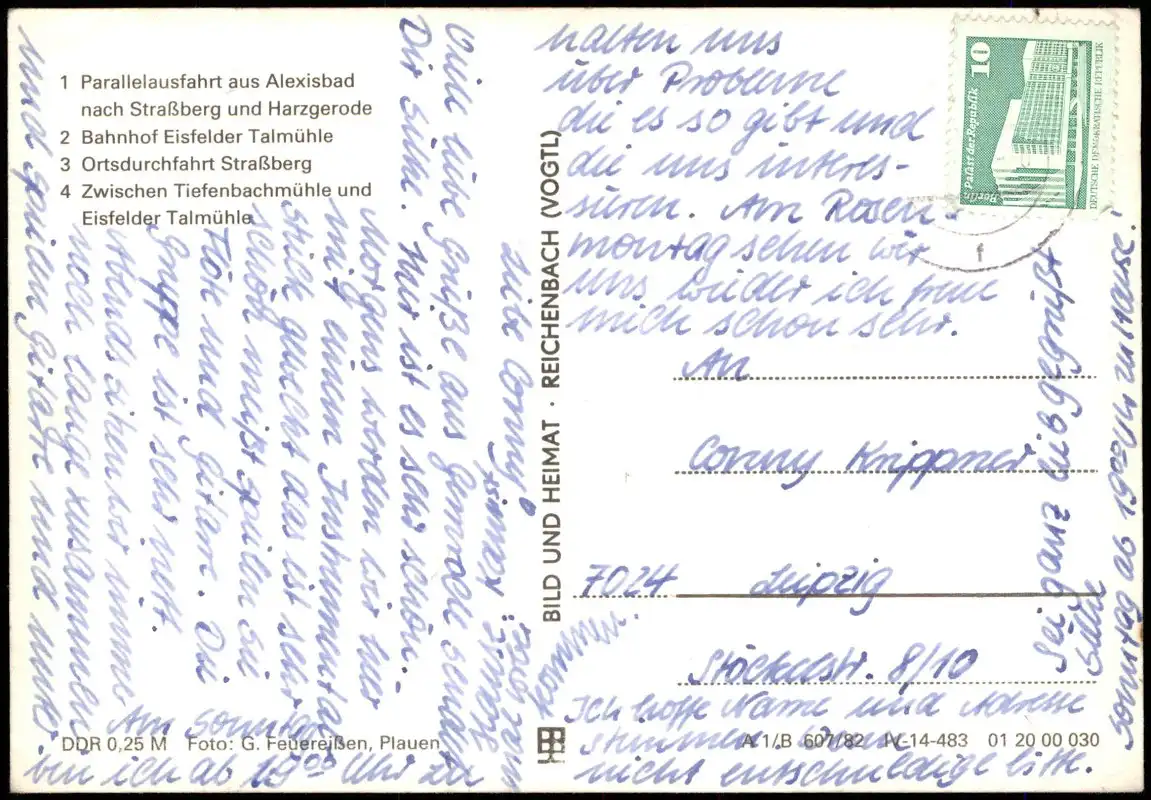 1 Parallelausfahrt aus Alexisbad
nach Straßberg und Harzgerode
2 Bahnhof Eisfelder Talmühle
3 Ortsdurchfahrt Straßberg
4 Zwischen Tiefenbachmühle und
Eisfelder Talmühle
Liebe Conny!
liebe Grüße aus Gernrode sendet
Dir Silke. Mir ist es sehr schön.
Morgens werden wir hier
mit einem Instrumental
stück geweckt das ist sehr
schön meist spielen sie
Flöte und Gitarre. Die
Gruppe ist sehr nett.
Abends sitzen wir immer
noch lange zusammen
und spielen Gitarre und unter
halten uns
über Probleme
die es so gibt und
die uns interes-
sieren. Am Rosen-
montag sehen wir
uns wieder ich freue
mich schon sehr.
Am Sonntag
bin ich ab 19⁰⁰ Uhr zu
Ich hoffe Name und Adresse
stimmen.
nicht entschuldige bitte.
Sei ganz lieb gegrüßt
Silke
Sonntag ab 19⁰⁰ Uhr zu Hause.
kommen.
An
Conny Krippner
7024 Leipzig
Stöckelstr. 8/10
BILD UND HEIMAT · REICHENBACH (VOGTL)
10
Berlin, Palast der Republik
DEUTSCHE DEMOKRATISCHE REPUBLIK
f
DDR 0,25 M Foto: G. Feuereißen, Plauen
A 1/B 607/82 IV-14-483 01 20 00 030